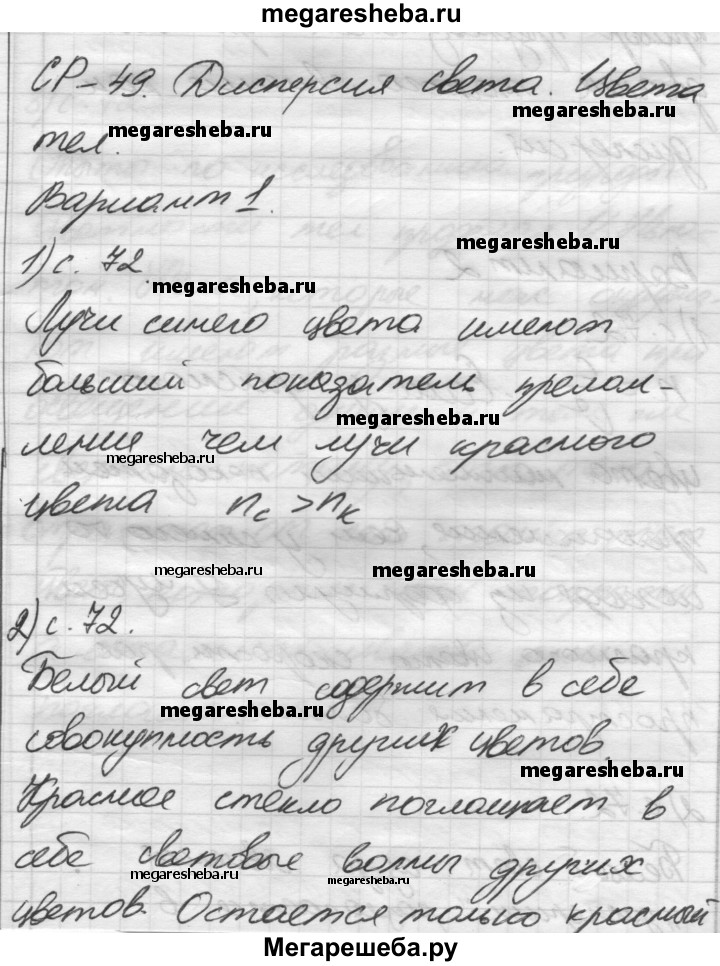 megaresheba.ru
СР-49. Дисперсия света. Цвета
megaresheba.ru
megaresheba.ru
тел.
Вариант 1.
megaresheba.ru
1) с. 72
megaresheba.ru
Лучи синего цвета имеют
больший показатель прелом-
megaresheba.ru
ления чем лучи красного
megaresheba.ru
цвета nс > nк
megaresheba.ru
megaresheba.ru
2) с. 72.
Белый свет содержит в себе
megaresheba.ru
совокупность других цветов.
megaresheba.ru
Красное стекло поглощает в
себе световые волны других
megaresheba.ru
megaresheba.ru
цветов. Остается только красный
Мегарешеба.ру